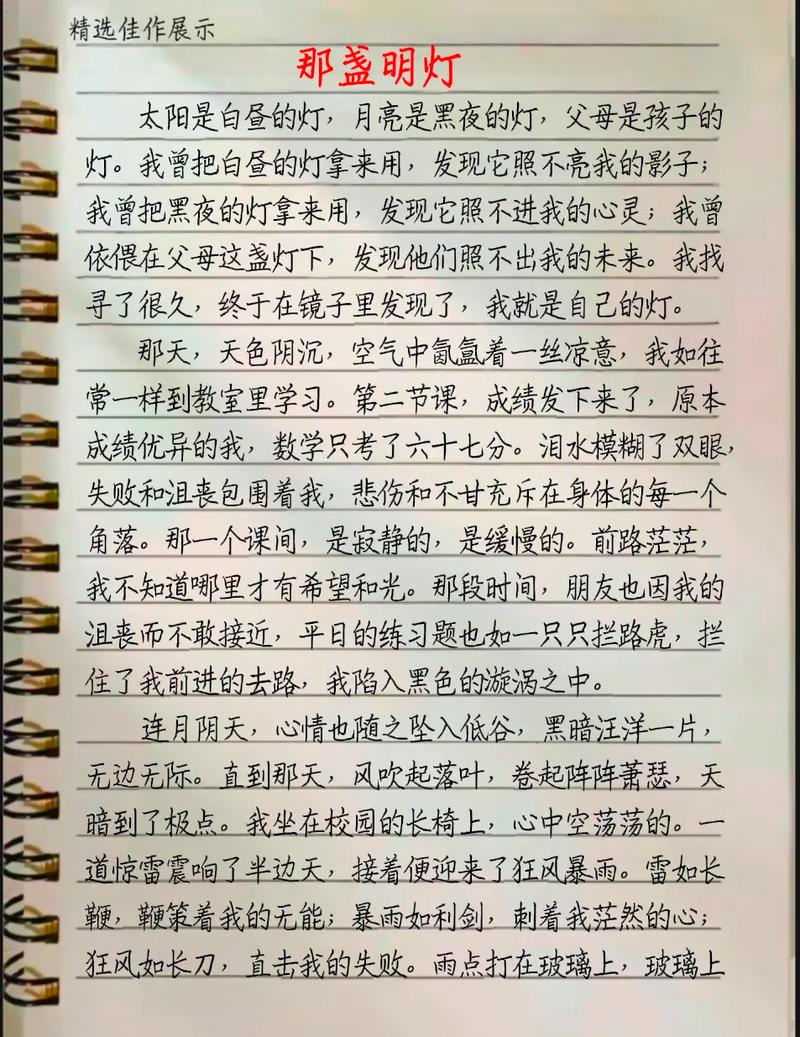 精选佳作展示
那盏明灯
太阳是白昼的灯，月亮是黑夜的灯，父母是孩子的
灯。我曾把白昼的灯拿来用，发现它照不亮我的影子；
我曾把黑夜的灯拿来用，发现它照不进我的心灵；我曾
依偎在父母这盏灯下，发现他们照不出我的未来。我找
寻了很久，终于在镜子里发现了，我就是自己的灯。
那天，天色阴沉，空气中氤氲着一丝凉意，我如往
常一样到教室里学习。第二节课，成绩发下来了，原本
成绩优异的我，数学只考了六十七分。泪水模糊了双眼，
失败和沮丧包围着我，悲伤和不甘充斥在身体的每一个
角落。那一个课间，是寂静的，是缓慢的。前路茫茫，
我不知道哪里才有希望和光。那段时间，朋友也因我的
沮丧而不敢接近，平日的练习题也如一只只拦路虎，拦
住了我前进的去路，我陷入黑色的漩涡之中。
连月阴天，心情也随之坠入低谷，黑暗汪洋一片，
无边无际。直到那天，风吹起落叶，卷起阵阵萧瑟，天
暗到了极点。我坐在校园的长椅上，心中空荡荡的。一
道惊雷震响了半边天，接着便迎来了狂风暴雨。雷如长
鞭，鞭策着我的无能；暴雨如利剑，刺着我茫然的心；
狂风如长刀，直击我的失败。雨点打在玻璃上，玻璃上